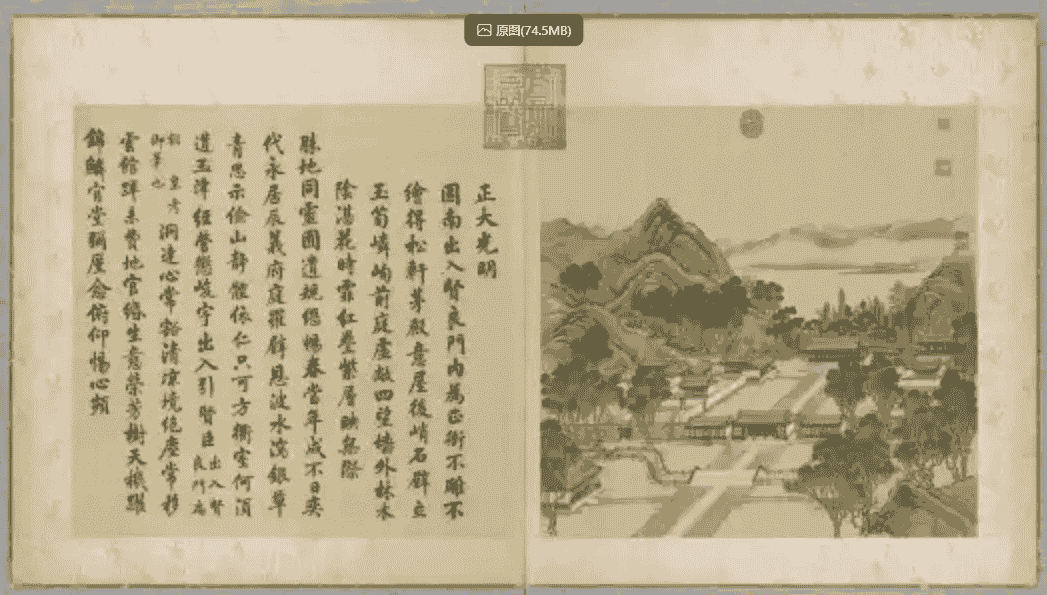 原图(74.5MB)
正大光明
園南出入賢良門內為正衙不雕不
繪得松軒茅殿意屋後峭石壁立
玉筍嶙峋前庭虛敞四望墻外林木
陰湛花時霏紅疊紫層映無際
勝地同靈囿遺規繼暢春當年成不日奕
代永居辰義府庭羅壁恩波水瀉銀草
青思示儉山靜體依仁只可方衢室何須
道玉津經營懲峻宇出入引賢臣 出入賢良門
皇考御筆也 洞達心常豁清涼境絕塵常移
雲館蹕未費地官緡生意榮芳樹天機躍
錦鱗肯堂彌厪念俯仰惕心頻